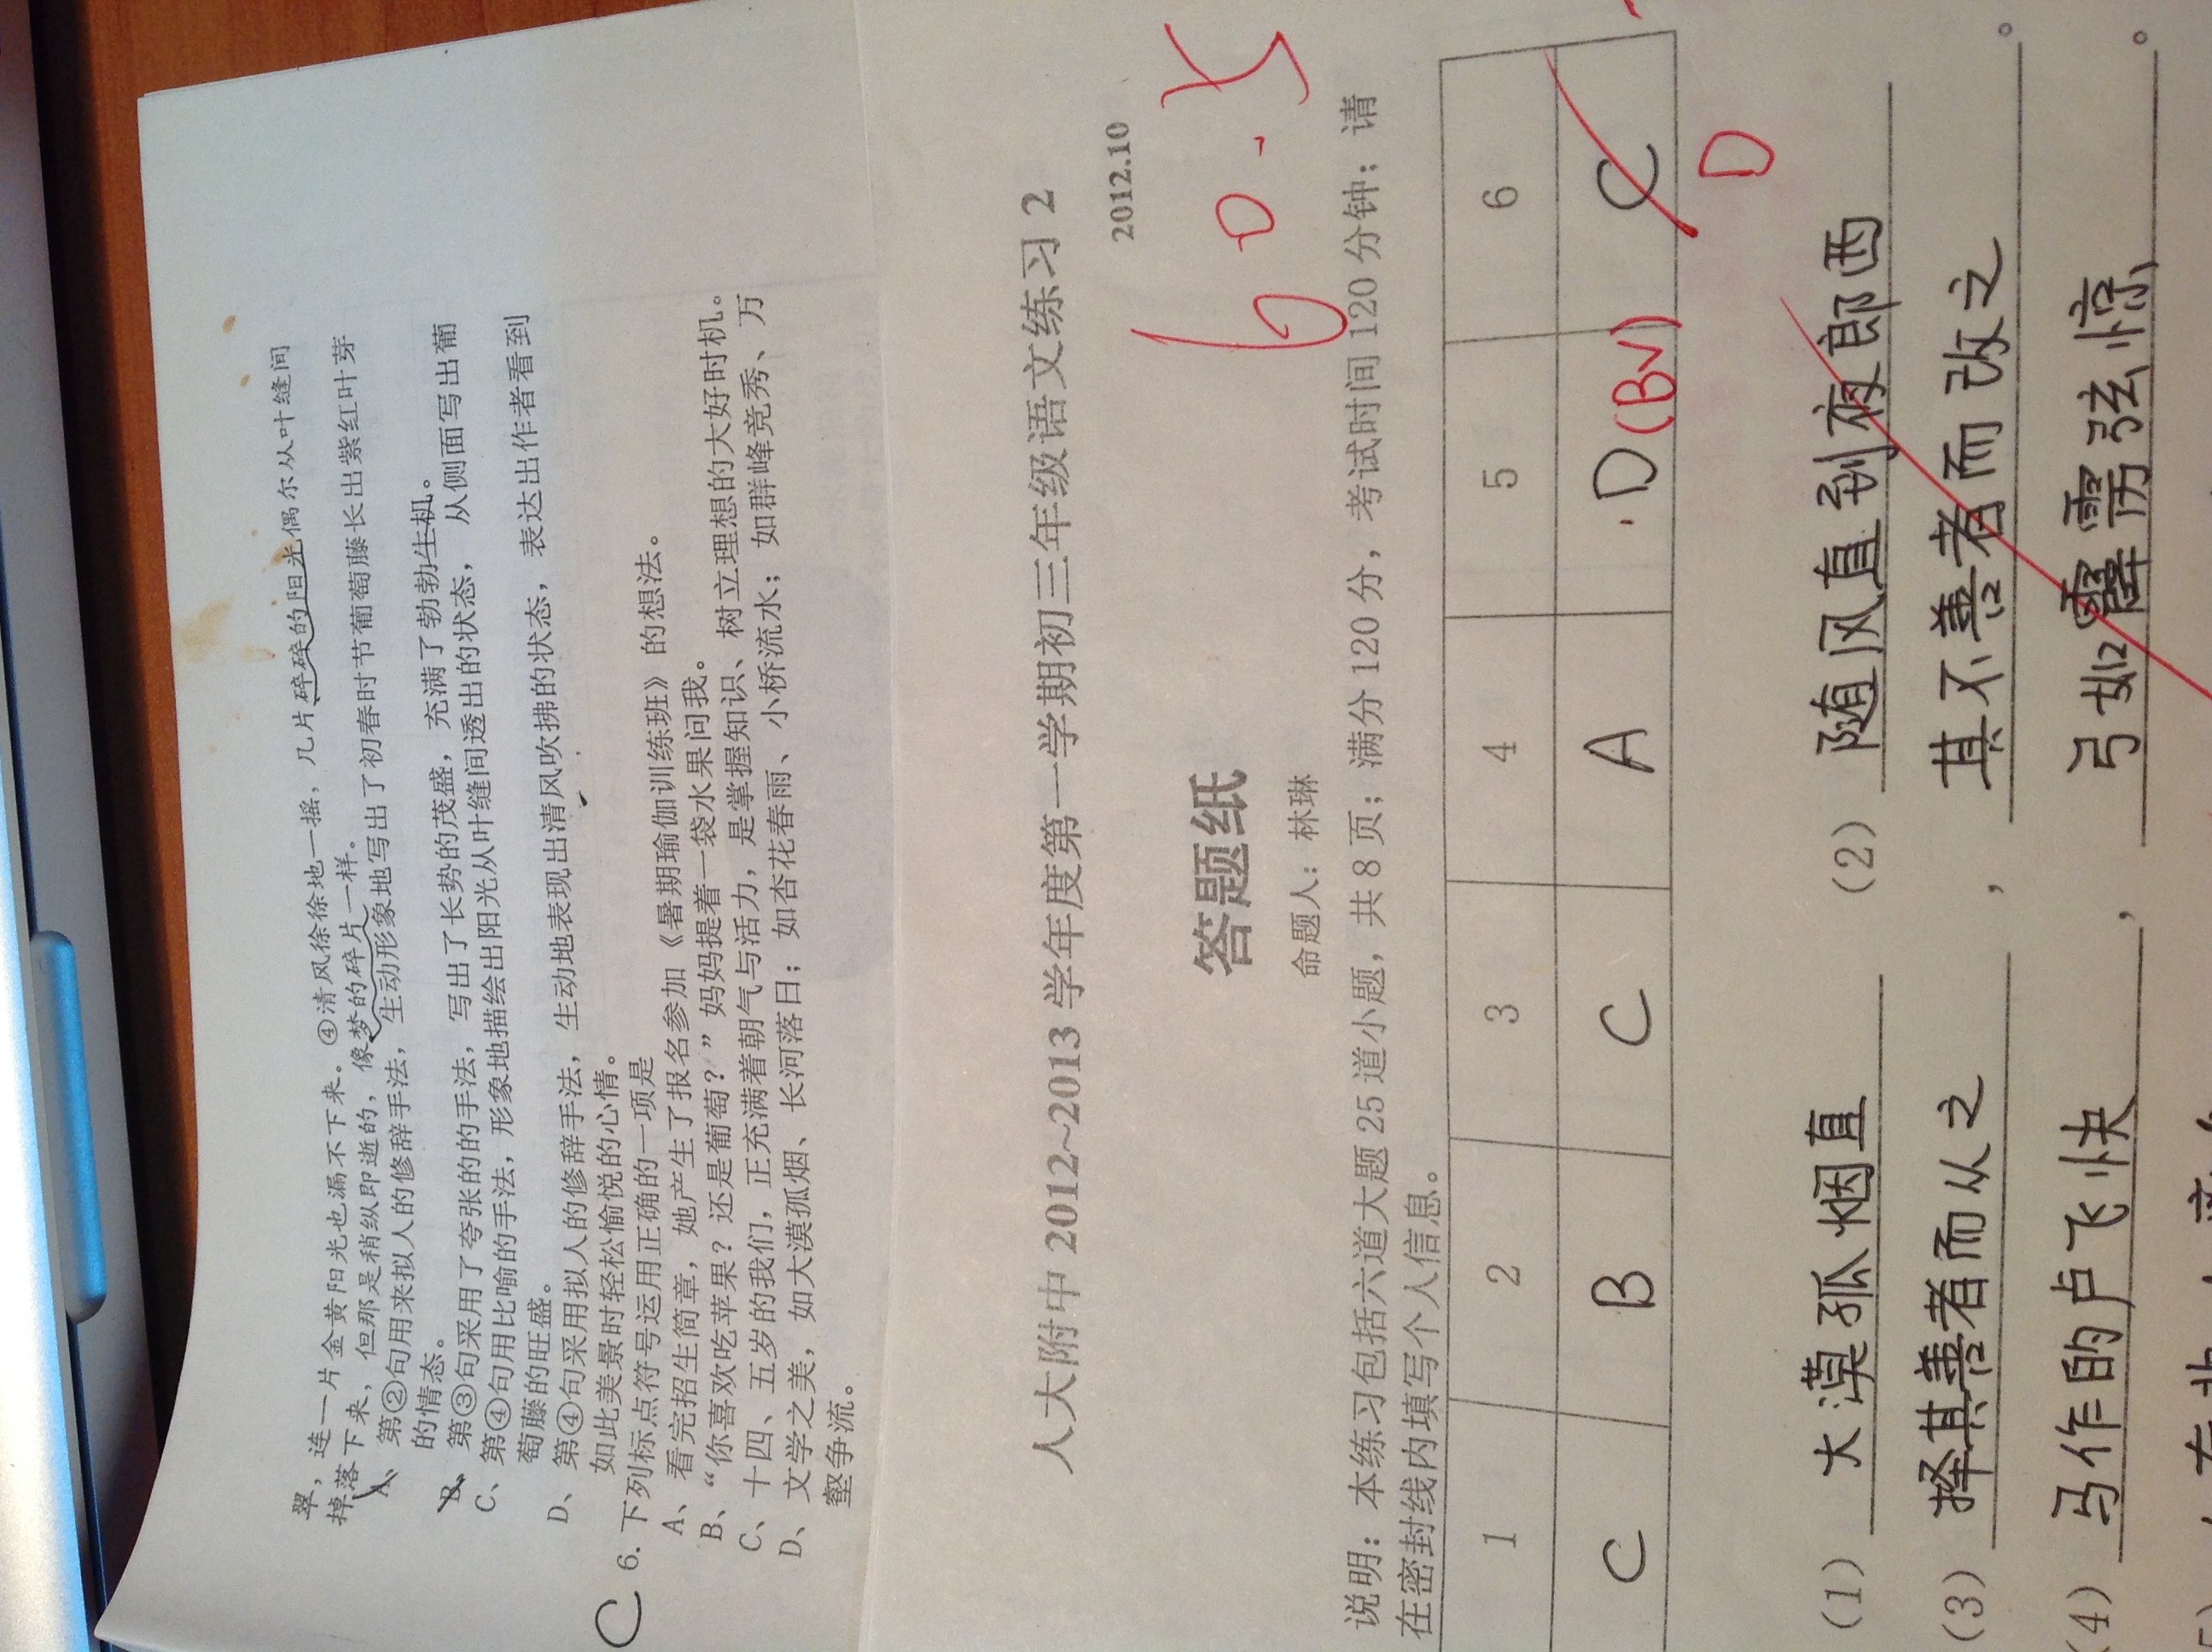 翠，连一片金黄阳光也漏不下来。④清风徐徐地一摇，几片碎碎的阳光偶尔从叶缝间
掉落下来，但那是稍纵即逝的，像梦的碎片一样。
A、第②句用来拟人的修辞手法，生动形象地写出了初春时节葡萄藤长出紫红叶芽
的情态。
B、第③句采用了夸张的的手法，写出了长势的茂盛，充满了勃勃生机。
C、第④句用比喻的手法，形象地描绘出阳光从叶缝间透出的状态，从侧面写出葡
萄藤的旺盛。
D、第④句采用拟人的修辞手法，生动地表现出清风吹拂的状态，表达出作者看到
如此美景时轻松愉悦的心情。
C 6. 下列标点符号运用正确的一项是
A、看完招生简章，她产生了报名参加《暑期瑜伽训练班》的想法。
B、“你喜欢吃苹果？还是葡萄？”妈妈提着一袋水果问我。
C、十四、五岁的我们，正充满着朝气与活力，是掌握知识、树立理想的大好时机。
D、文学之美，如大漠孤烟、长河落日；如杏花春雨、小桥流水；如群峰竞秀、万
壑争流。
人大附中 2012~2013 学年度第一学期初三年级语文练习 2
2012.10
60.5
答题纸
命题人：林琳
说明：本练习包括六道大题 25 道小题，共 8 页；满分 120 分，考试时间 120 分钟；请
在密封线内填写个人信息。
1 2 3 4 5 6
C B C A D (B√) C
D
（1） 大漠孤烟直 （2） 随风直到夜郎西
（3） 择其善者而从之 ， 其不善者而改之 。
（4） 马作的卢飞快 ， 弓如霹雳弦惊 。